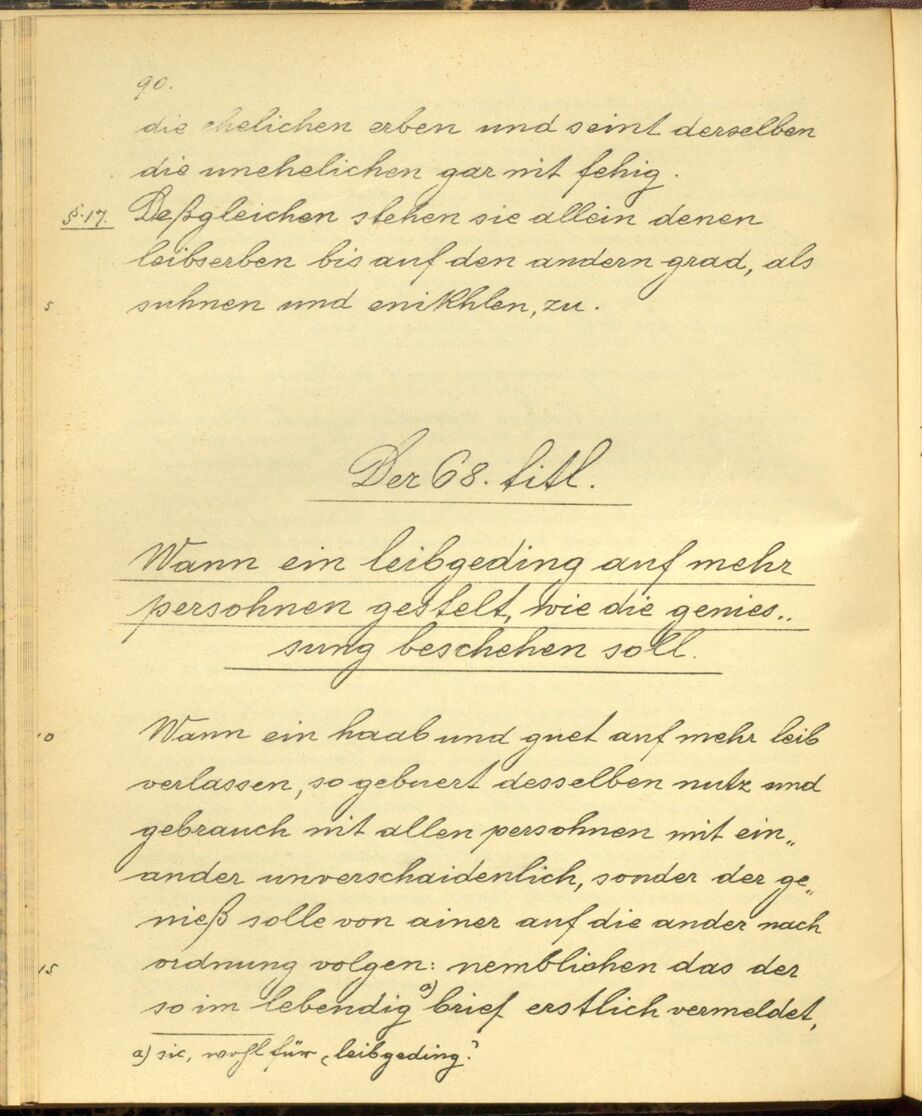 90.
die ehelichen erben und seint derselben
die unehelichen gar nit fehig.
§. 17. Deßgleichen stehen sie allein denen
leibserben bis auf den andern grad, als
5 suhnen und enikhlen, zu.
Der 68. titl.
Wann ein leibgeding auf mehr
persohnen gestelt, wie die genies..
sung beschehen soll.
10 Wann ein haab und guet auf mehr leib
verlassen, so gebuert desselben nutz und
gebrauch nit allen persohnen mit ein„
ander unverschaidenlich, sonder der ge„
nieß solle von ainer auf die ander nach
15 ordnung volgen: nemblichen das der
so im lebendig a) brief erstlich vermeldet,
a) sic, wohl für „leibgeding.?